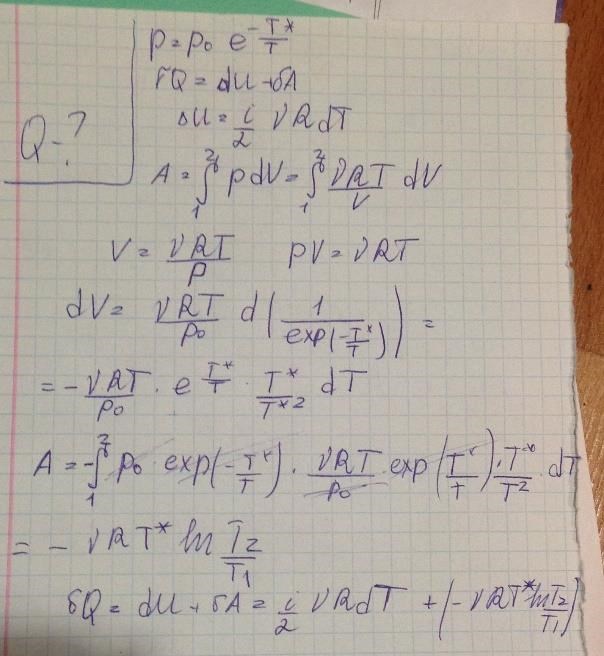 p = p₀ e^(-T*/T)
δQ = dU + δA
Q-?
ΔU = i/2 νRdT
A = ∫₁² pdV = ∫₁² νRT/V dV
V = νRT/p   pV = νRT
dV = νRT/p₀ d(1/exp(-T*/T)) =
= - νRT/p₀ · e^(T*/T) · T*/T*² dT
A = -∫₁² p₀ exp(-T*/T) · νRT/p₀ exp(T*/T) · T*/T² · dT
= - νRT* ln T₂/T₁
δQ = dU + δA = i/2 νRdT + (-νRT* ln T₂/T₁)